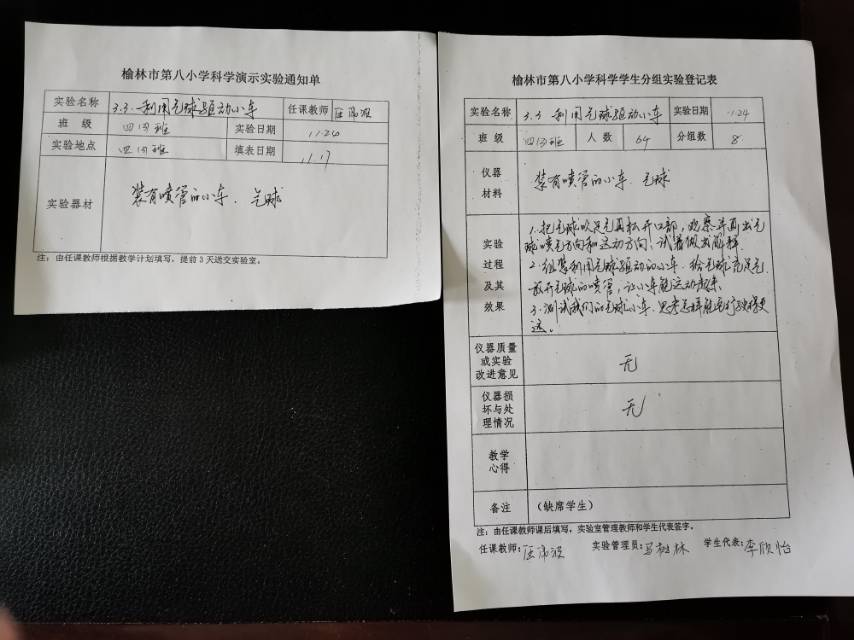 榆林市第八小学科学演示实验通知单
实验名称 3.3 利用气球驱动小车 任课教师
班 级 实验日期 11.24
实验地点 填表日期 11.17
实验器材 装有喷管的小车、气球
注：由任课教师根据教学计划填写，提前3天送交实验室。
榆林市第八小学科学学生分组实验登记表
实验名称 3.3 利用气球驱动小车 实验日期 11.24
班 级 人 数 64 分组数 8
仪器材料 装有喷管的小车、气球
实验过程及其效果
1.把气球吹足气再松开口部，观察并画出气
球喷气方向和运动方向，试着做出解释。
2.组装利用气球驱动的小车，给气球充足气
放开气球的喷管，让小车能运动起来。
3.测试我们的气球小车，思考怎样能够行驶得更
远。
仪器质量或实验改进意见 无
仪器损坏与处理情况 无
教学心得
备注 （缺席学生）
注：由任课教师课后填写，实验室管理教师和学生代表签字。
任课教师： 实验管理员：马树林 学生代表：李欣怡